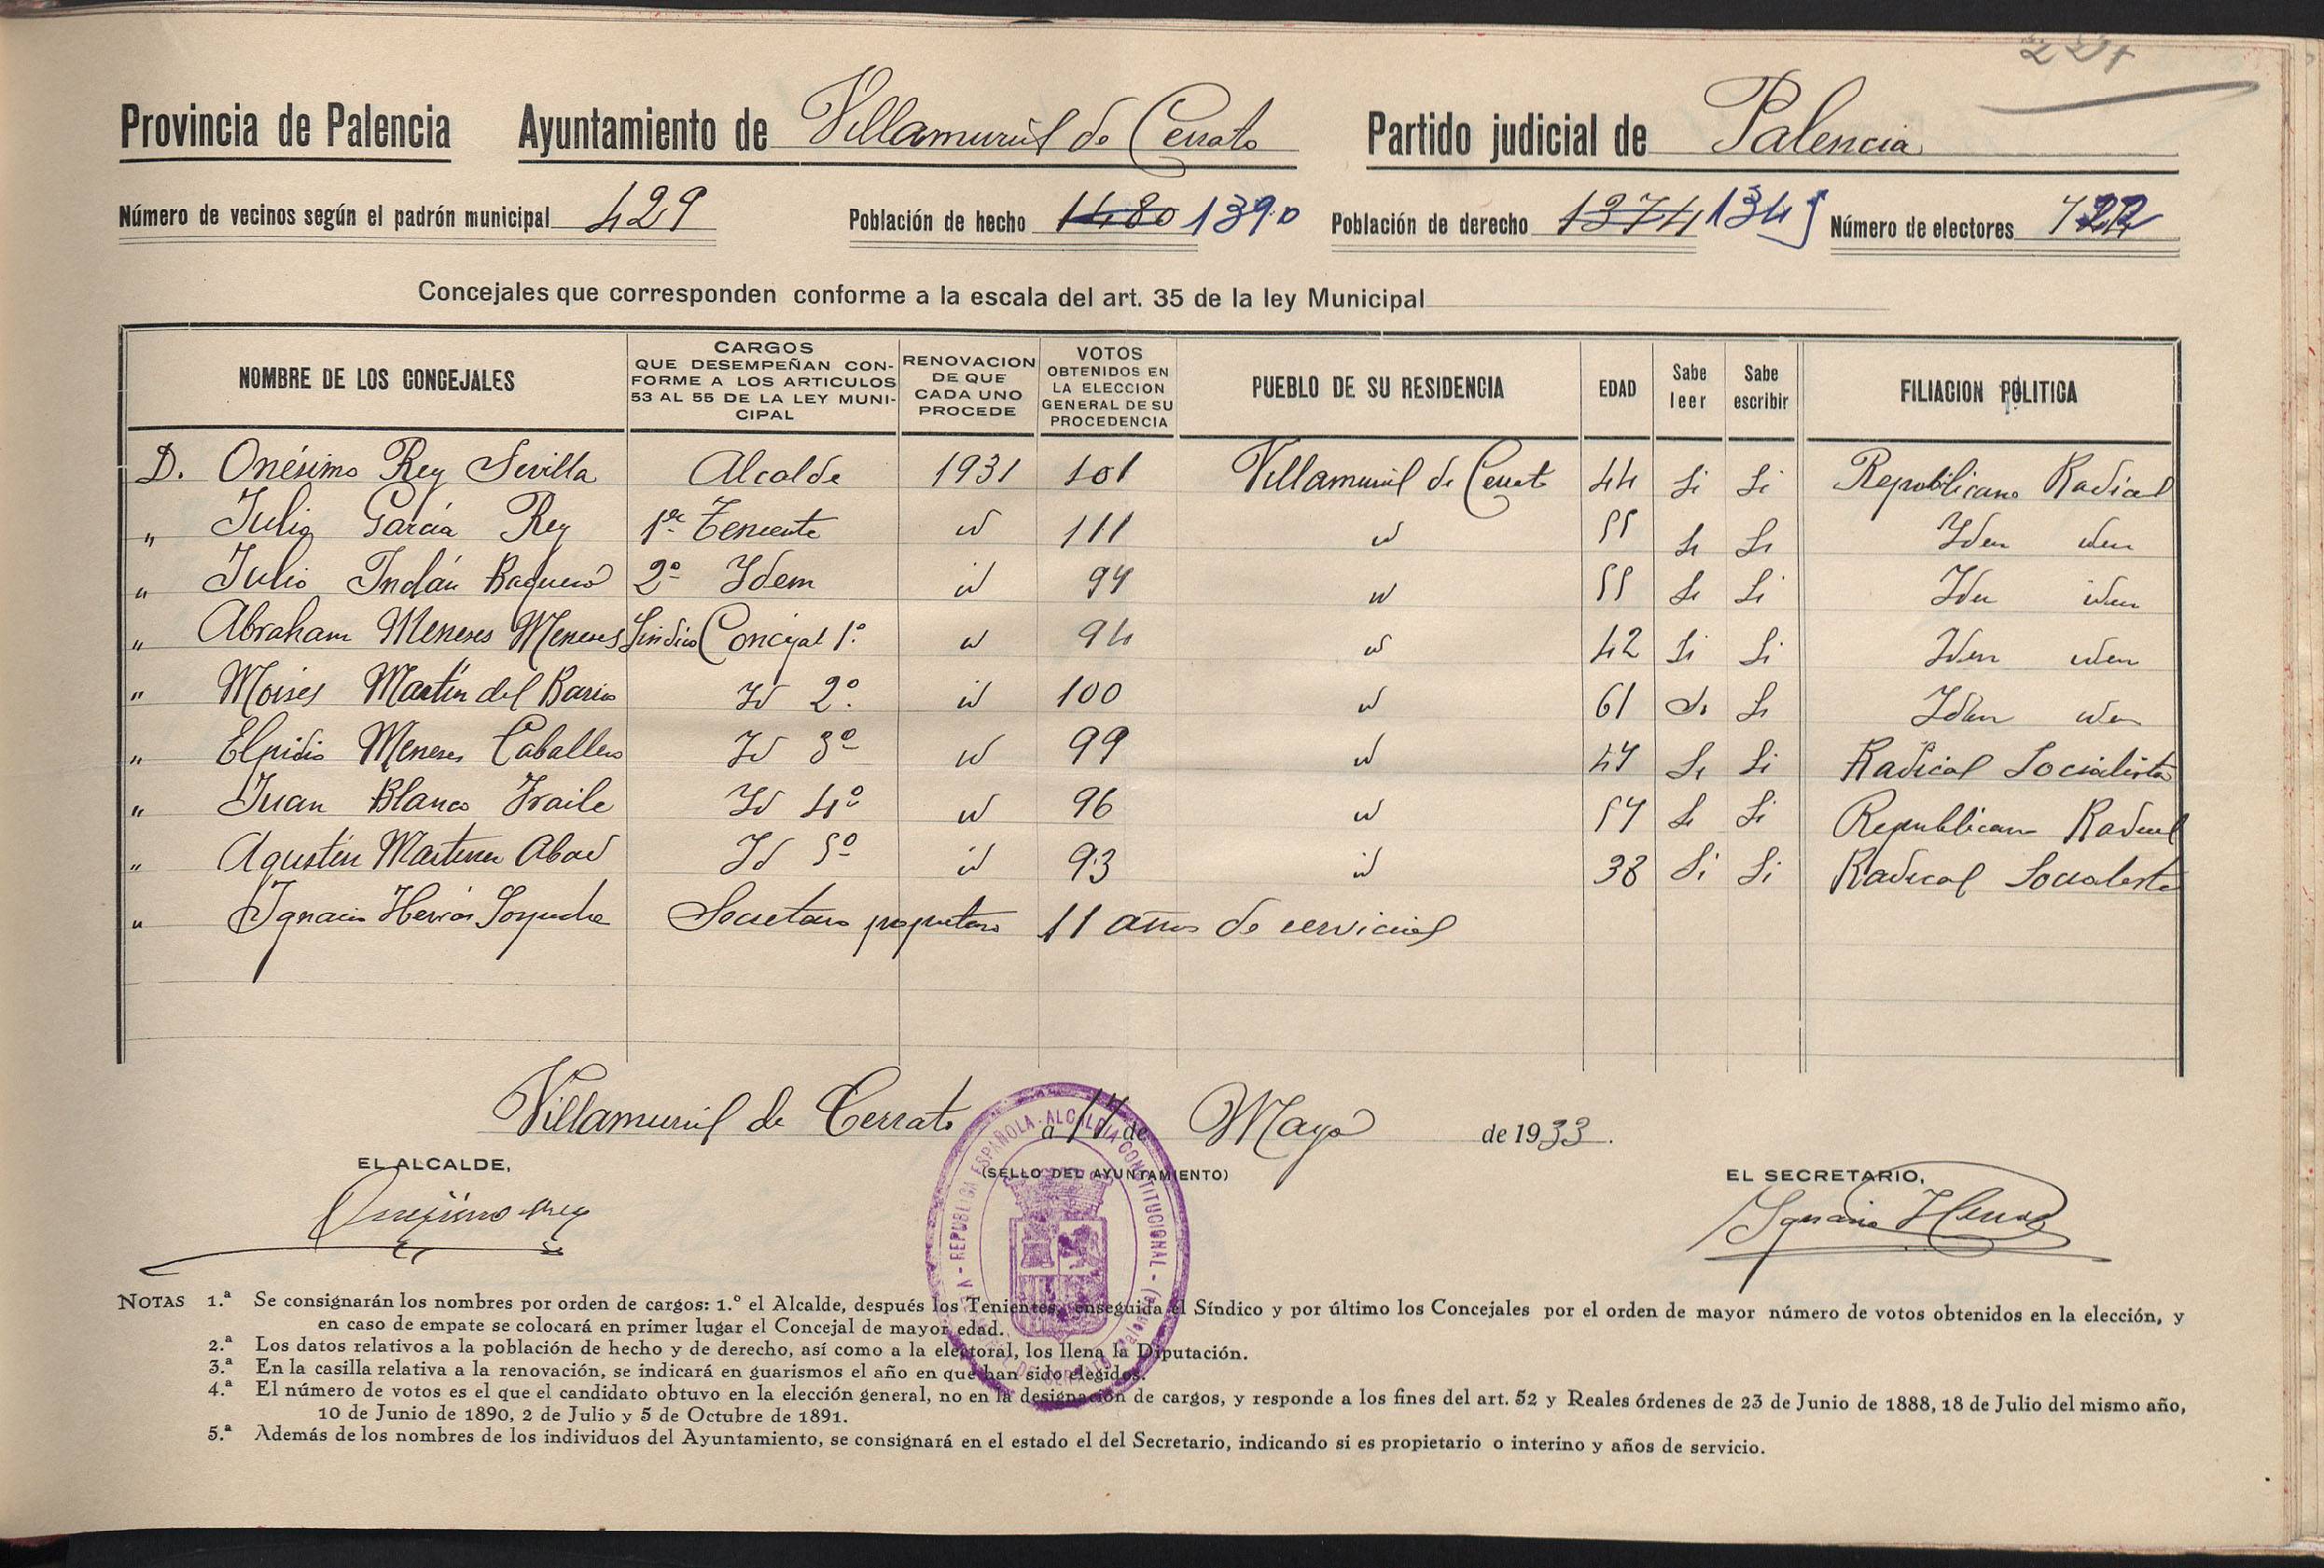 221
Provincia de Palencia Ayuntamiento de Villamuriel de Cerrato Partido judicial de Palencia
Número de vecinos según el padrón municipal 429 Población de hecho 1480 1390 Población de derecho 1374 1345 Número de electores 722
Concejales que corresponden conforme a la escala del art. 35 de la ley Municipal
NOMBRE DE LOS CONCEJALES
CARGOS
QUE DESEMPEÑAN CON-
FORME A LOS ARTICULOS
53 AL 55 DE LA LEY MUNI-
CIPAL
RENOVACION
DE QUE
CADA UNO
PROCEDE
VOTOS
OBTENIDOS EN
LA ELECCION
GENERAL DE SU
PROCEDENCIA
PUEBLO DE SU RESIDENCIA
EDAD
Sabe
leer
Sabe
escribir
FILIACION POLITICA
D. Onésimo Rey Sevilla Alcalde 1931 101 Villamuriel de Cerrato 44 Si Si Republicano Radical
" Julio García Rey 1er Teniente id 111 id 55 Si Si Idem idem
" Julio Inclán Baquero 2º Idem id 94 id 55 Si Si Idem idem
" Abraham Meneses Meneses Sindico Concejal 1º id 94 id 42 Si Si Idem idem
" Moises Martín del Barrio Id 2º id 100 id 61 Si Si Idem idem
" Elpidio Meneses Caballero Id 3º id 99 id 47 Si Si Radical Socialista
" Juan Blanco Fraile Id 4º id 96 id 57 Si Si Republicano Radical
" Agustin Martinez Abad Id 5º id 93 id 38 Si Si Radical Socialista
" Ignacio Secretario propietario 11 años de servicios
Villamuriel de Cerrato a 17 de Mayo de 1933.
EL ALCALDE,
(SELLO DEL AYUNTAMIENTO)
EL SECRETARIO,
Onesimo Rey
Ignacio
REPUBLICA ESPAÑOLA - ALCALDIA CONSTITUCIONAL - DE CERRATO (Palencia)
NOTAS 1.ª Se consignarán los nombres por orden de cargos: 1.º el Alcalde, después los Tenientes, enseguida el Síndico y por último los Concejales por el orden de mayor número de votos obtenidos en la elección, y
en caso de empate se colocará en primer lugar el Concejal de mayor edad.
2.ª Los datos relativos a la población de hecho y de derecho, así como a la electoral, los llena la Diputación.
3.ª En la casilla relativa a la renovación, se indicará en guarismos el año en que han sido elegidos.
4.ª El número de votos es el que el candidato obtuvo en la elección general, no en la designación de cargos, y responde a los fines del art. 52 y Reales órdenes de 23 de Junio de 1888, 18 de Julio del mismo año,
10 de Junio de 1890, 2 de Julio y 5 de Octubre de 1891.
5.ª Además de los nombres de los individuos del Ayuntamiento, se consignará en el estado el del Secretario, indicando si es propietario o interino y años de servicio.